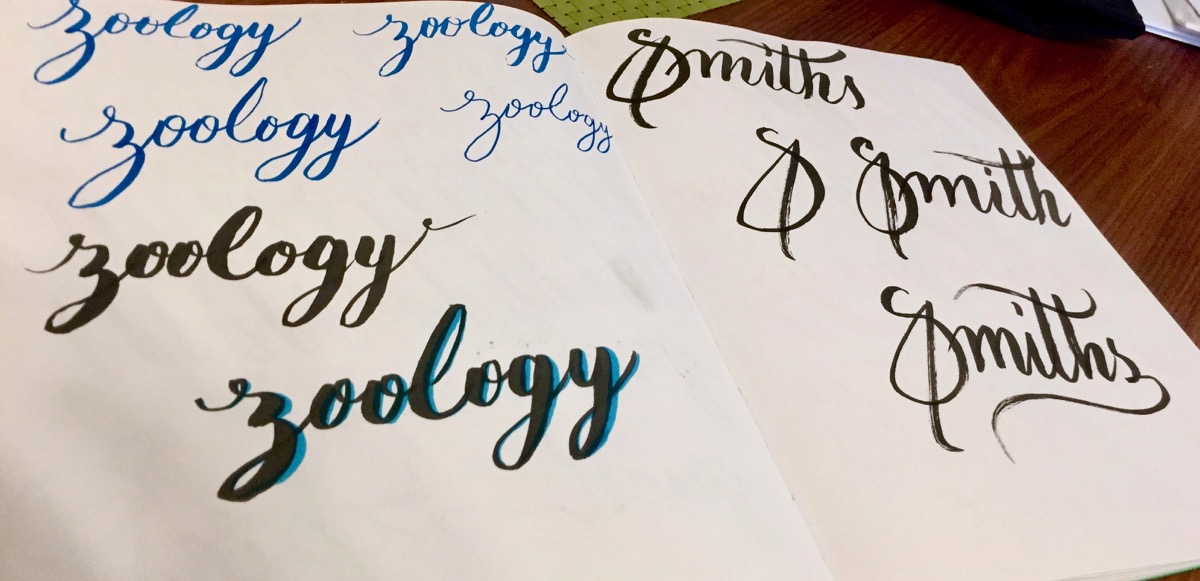 zoology zoology
zoology zoology
zoology
zoology
Smiths
S Smith
Smiths